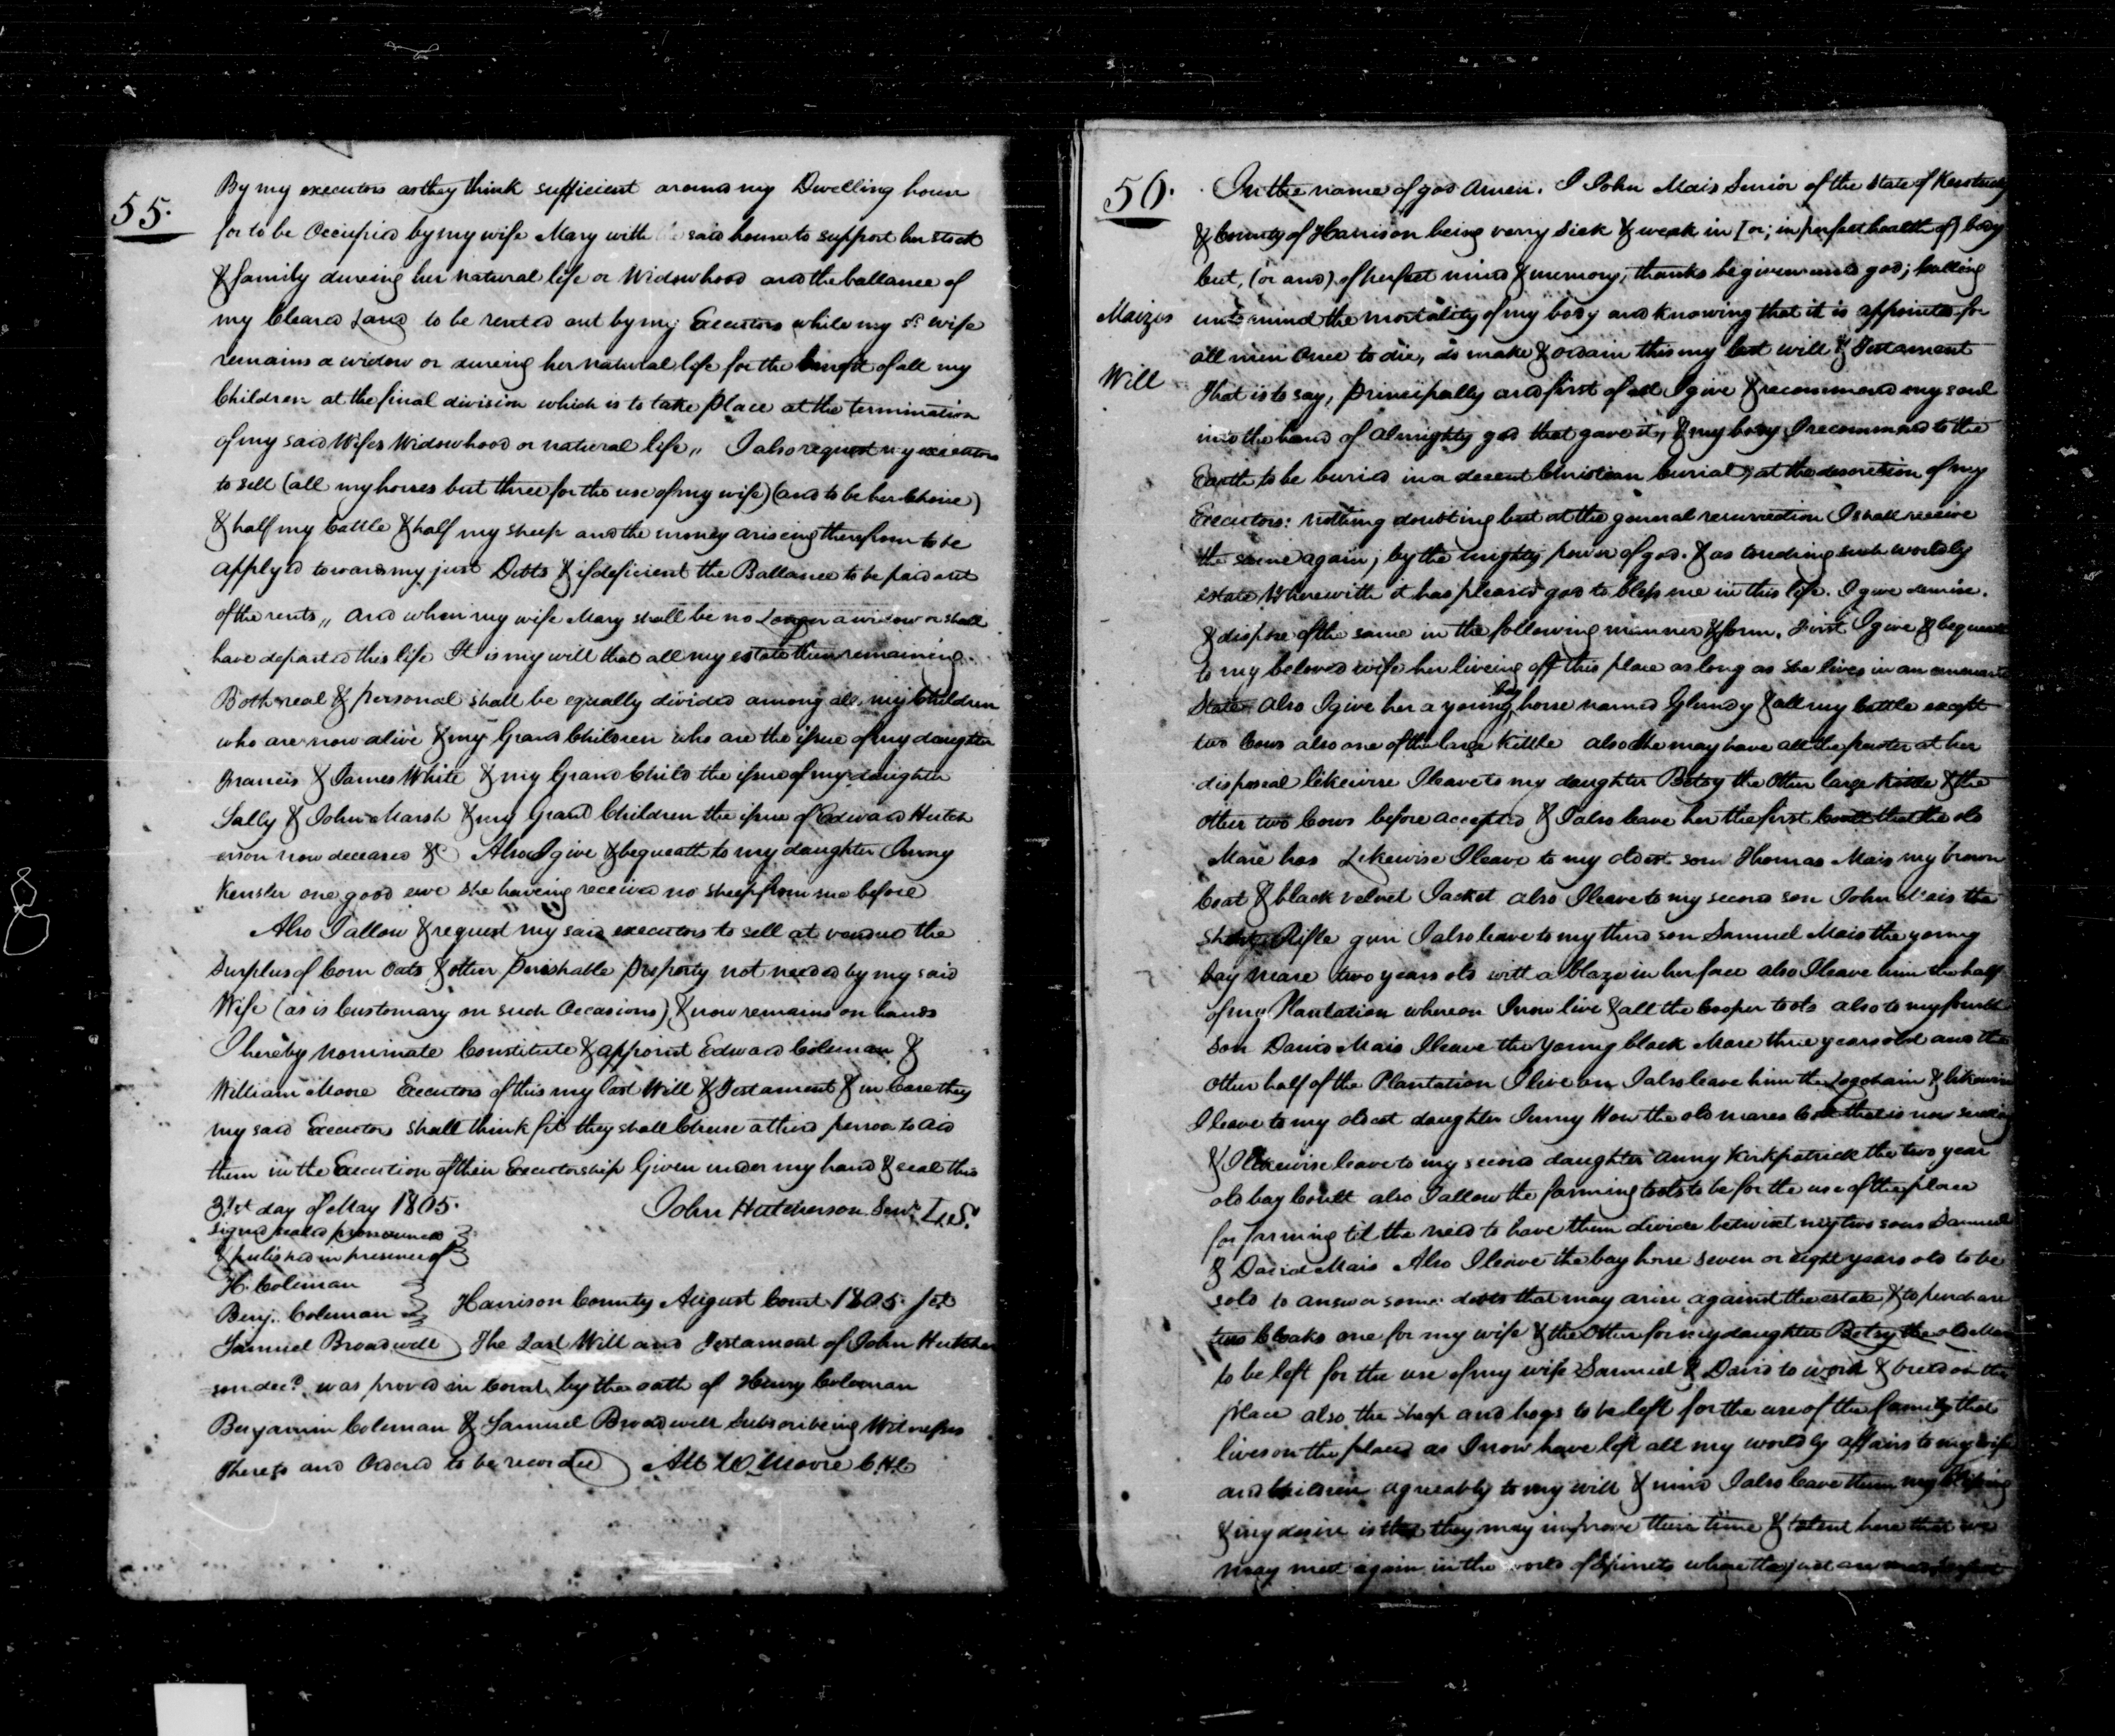 55.
By my executors as they think sufficient around my Dwelling house
for to be Occupied by my wife Mary with said house to support her stock
& family dureing her natural life or Widowhood and the ballance of
my Cleared Land to be rented out by my Executors while my sd wife
remains a widow or dureing her natural life for the benefit of all my
Children at the final division which is to take place at the termination
of my said Wifes Widowhood or natural life,, I also request my executors
to sell (all my horses but three for the use of my wife) (and to be her Choice)
& half my Cattle & half my sheep and the money ariseing therefrom to be
applyed towards my just Debts & if deficient the Ballance to be paid out
of the rents,, and when my wife Mary shall be no Longer a widow or shall
have departed this life It is my will that all my estate then remaining
Both real & personal shall be equally divided among all my Children
who are now alive & my Grand Children who are the issue of my daughter
Francis & James White & my Grand Child the issue of my daughter
Sally & John Marsh & my Grand Children the issue of Edward Hutch
erson now deceased &C Also I give & bequeath to my daughter Jenny
Kensler one good ewe she haveing received no sheep from me before
Also I allow & request my said executors to sell at vendue the
Surplus of Corn Oats & other Perishable Property not needed by my said
Wife (as is Customary on such Occasions) & now remains on hands
I hereby nominate Constitute & appoint Edward Coleman &
William Moore Executors of this my last Will & Testament & in Case they
my said Executors shall think fit they shall Chuse a third person to aid
them in the Execution of their Executorship Given under my hand & seal this
31st day of May 1805. John Hutcherson Senr. L.S.
signed sealed pronounced
& published in presence of
H. Coleman
Benj. Coleman Harrison County August Court 1805. Jct
Samuel Broadwell The Last Will and Testament of John Hutcher
son decd. was proved in Court by the oath of Henry Coleman
Benjamin Coleman & Samuel Broadwell Subscribeing Witnesses
Thereto and Ordered to be recorded Att W Moore C.H.C
56.
Maizes
Will
In the name of god Amen. I John Mais Senior of the State of Kentucky
& County of Harrison being verry sick & weak in [or; in perfect health of) body
but, (or and) of perfect mind & memory, thanks be given unto god; Calling
unto mind the mortality of my body and knowing that it is appointed for
all men once to die, do make & ordain this my last will & Testament
That is to say, principally and first of all I give & recommend my soul
into the hand of almighty god that gave it, & my body I recommend to the
Earth to be buried in a decent Christian burial, at the descretion of my
Executors: nothing doubting but at the general resurrection I shall receive
the same again, by the mighty power of god. & as touching such worldly
estate, Wherewith it has pleased god to bless me in this life. I give demise.
& dispose of the same in the following manner & form. First I give & bequeath
to my beloved wife her liveing off this place as long as she lives in an unmarried
State Also I give her a young bay horse named Glundy & all my Cattle except
two Cows also one of the large Kittle also She may have all the pewter at her
disposial likewise I leave to my daughter Betsy the Other large Kittle & the
other two Cows before accepted & I also leave her the first Coult that the old
Mare has Likewise I leave to my oldest son Thomas Mais my brown
Coat & black velvet Jacket also I leave to my second son John Mais the
Rifle gun I also leave to my third son Samuel Mais the young
bay mare two years old with a blaze in her face also I leave him the half
of my Plantation whereon I now live & all the Cooper tools also to my fourth
Son David Mais I leave the young black Mare three years old and the
other half of the Plantation I live on, I also leave him the Logchain & likewise
I leave to my oldest daughter Jenny How the old mares Colt that is now sucking
& I likewise leave to my second daughter Anny Kirkpatrick the two year
old bay Coult also I allow the farming tools to be for the use of the place
for farming til the need to have them divide betwixt my two sons Samuel
& David Mais Also I leave the bay horse seven or eight years old to be
sold to answer some debts that may arise against the estate & to purchase
two Cloaks one for my wife & the Other for my daughter Betsy the old Mare
to be left for the use of my wife Samuel & David to work & breed on the
place also the sheep and hogs to be left for the use of the family that
lives on the place as I now have left all my worldly affairs to my wife
and Children agreeably to my will & mind I also leave them my blessing
& my desire is that they may improve their time & talent here that we
may meet again in the world of Spirrits where the just are made perfect